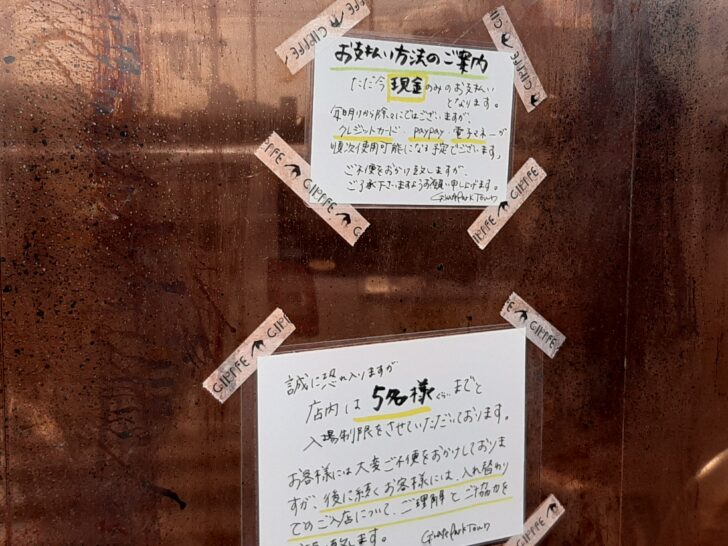 お支払い方法のご案内
ただ今 現金 のみのお支払い
となります。
クレジットカード PayPay 電子マネーが
順次使用可能になる予定でございます。
ご不便をおかけ致しますが、
ご了承下さいますようお願い申し上げます。
誠に恐れ入りますが
店内は 5名様ぐらいまでと
入場制限をさせていただいております。
お客様には大変ご不便をおかけしておりま
すが、後に続くお客様には、入れ替わり
でのご入店について、ご理解とご協力を